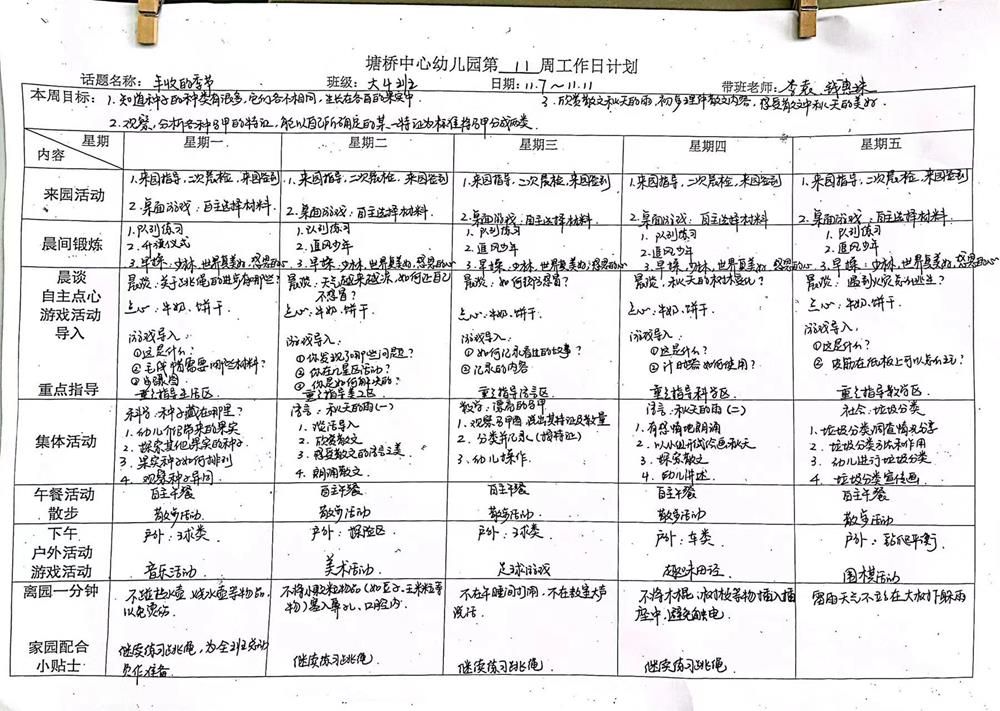 塘桥中心幼儿园第 11 周工作日计划
话题名称：丰收的季节 班级：大4班 日期：11.7～11.11 带班老师：
本周目标：1.知道种子的种类有很多，它们各不相同，生长在各自的果实中。 3.欣赏散文秋天的雨，初步理解散文内容，感受散文中秋天的美好。
2.观察，分析各种马甲的特征，能以自己所确定的某一特征为标准将马甲分成两类。
星期 内容 星期一 星期二 星期三 星期四 星期五
来园活动
1.来园指导，二次晨检，来园签到
2.桌面游戏：自主选择材料
1.来园指导，二次晨检，来园签到
2.桌面游戏：自主选择材料.
1.来园指导，二次晨检，来园签到
2.桌面游戏：自主选择材料.
1.来园指导，二次晨检，来园签到
2.桌面游戏：自主选择材料
1.来园指导，二次晨检，来园签到
2.桌面游戏：自主选择材料
晨间锻炼
1.队列练习
2.升旗仪式
3.早操：少林，世界真美好，感恩的心
1.队列练习
2.追风少年
3.早操：少林，世界真美好，感恩的心
1.队列练习
2.追风少年
3.早操：少林，世界真美好，感恩的心
1.队列练习
2.追风少年
3.早操：少林，世界真美好，感恩的心
1.队列练习
2.追风少年
3.早操：少林，世界真美好，感恩的心
晨谈
自主点心
游戏活动
导入
重点指导
晨谈：关于跳绳的进步有哪些？
点心：牛奶、饼干
游戏导入：
①这是什么？
②毛线帽需要哪些材料？
重点指导生活区
晨谈：天气越来越凉，如何让自己
不感冒？
点心：牛奶、饼干
游戏导入：
①你发现了哪些问题？
②你在几号区活动？
③你是如何解决的？
重点指导美工区
晨谈：如何预防感冒？
点心：牛奶、饼干
游戏导入：
①如何记录看过的故事？
②记录的内容
重点指导语言区
晨谈：秋天的树林变化？
点心：牛奶、饼干
游戏导入：
①这是什么？
②计时器如何使用？
重点指导科学区
晨谈：遇到火灾怎么逃生？
点心：牛奶、饼干
游戏导入：
①这是什么？
②皮筋在纸板上可以怎么玩？
重点指导数学区
集体活动
科学：种子藏在哪里？
1.幼儿介绍带来的果实
2.探索其他果实的种子
3.果实种子如何排列
4.观察种子异同
语言：秋天的雨(一)
1.谈话导入
2.欣赏散文
3.感受散文的语言之美
4.朗诵散文
数学：漂亮的马甲
1.观察马甲图，说出其特征及数量
2.分类并记录（按特征）
3.幼儿操作
语言：秋天的雨(二)
1.有感情地朗诵
2.以小组形式绘画秋天
3.探索散文
4.幼儿讲述
社会：垃圾分类
1.垃圾分类调查情况分享
2.垃圾分类方法和作用
3.幼儿进行垃圾分类
4.垃圾分类宣传画
午餐活动
散步
自主午餐
散步活动
自主午餐
散步活动
自主午餐
散步活动.
自主午餐
散步活动
自主午餐
散步活动
下午
户外活动
游戏活动
户外：球类
音乐活动
户外：探险区
美术活动
户外：球类
足球游戏
户外：车类
趣味田径
户外：钻爬平衡
围棋活动
离园一分钟
不碰热水壶，烧水壶等物品，
以免烫伤.
不将小颗粒物品（如豆子、玉米粒等
物）塞入鼻孔、口腔内.
不在午睡间打闹，不在教室大声
说话
不将木棍，树枝等物插入插
座中，避免触电
雷雨天气不站在大树下躲雨
家园配合
小贴士
继续练习跳绳，为全班活动
做准备
继续练习跳绳.
继续练习跳绳.
继续练习跳绳.